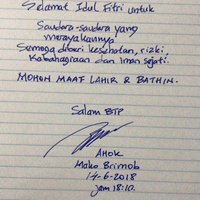 Selamat Idul Fitri untuk
Saudara-saudara yang
merayakannya
Semoga diberi kesehatan, rizki,
Kabahagiaan dan iman sejati.
MOHON MAAF LAHIR & BATHIN.
Salam BTP
AHOK
Mako Brimob
14-6-2018
jam 18:10.